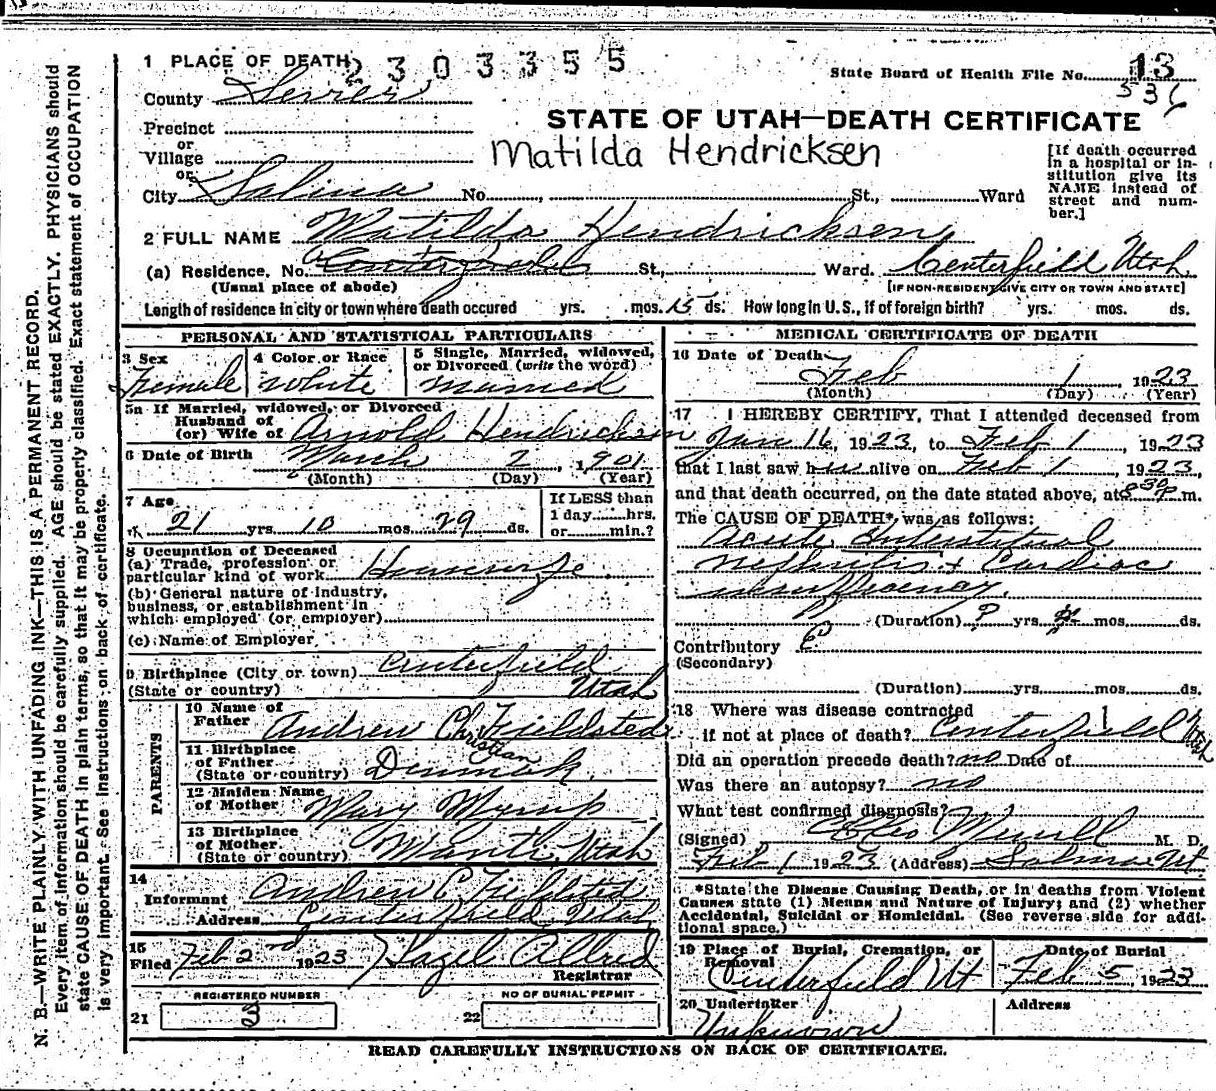 1 PLACE OF DEATH 2303355
State Board of Health File No. 13
536
County Sevier
STATE OF UTAH—DEATH CERTIFICATE
Precinct
or
Village
Matilda Hendricksen
[If death occurred
in a hospital or in-
stitution give its
NAME instead of
street and num-
ber.]
or
City Salina No. St., Ward
2 FULL NAME Matilda Hendricksen
(a) Residence, No. Centerfield St., Ward. Centerfield Utah
(Usual place of abode) [IF NON-RESIDENT GIVE CITY OR TOWN AND STATE]
Length of residence in city or town where death occured yrs. mos. 15 ds. How long in U.S., if of foreign birth? yrs. mos. ds.
PERSONAL AND STATISTICAL PARTICULARS
3 Sex 4 Color or Race 5 Single, Married, widowed,
or Divorced (write the word)
Female White Married
5a If Married, widowed, or Divorced
Husband of
(or) Wife of Arnold Hendricksen
6 Date of Birth March 2, 1901
(Month) (Day) (Year)
7 Age If LESS than
1 day hrs.
21 yrs. 10 mos. 29 ds. or min.?
8 Occupation of Deceased
(a) Trade, profession or
particular kind of work Housewife
(b) General nature of Industry,
business, or establishment in
which employed (or employer)
(c) Name of Employer
9 Birthplace (City or town) Centerfield
(State or country) Utah
PARENTS
10 Name of
Father Andrew Christian Fieldsted
11 Birthplace
of Father
(State or country) Denmark
12 Maiden Name
of Mother Mary Myrup
13 Birthplace
of Mother
(State or country) Manti, Utah
14
Informant Andrew C Fieldsted
Address Centerfield Utah
15
Filed Feb 2nd 1923 Hazel Allred
Registrar
REGISTERED NUMBER NO OF BURIAL PERMIT
21 3 22
MEDICAL CERTIFICATE OF DEATH
16 Date of Death
Feb 1, 1923
(Month) (Day) (Year)
17 I HEREBY CERTIFY, That I attended deceased from
Jan 16, 1923, to Feb 1, 1923
that I last saw her alive on Feb 1, 1923,
and that death occurred, on the date stated above, at 8 30 P m.
The CAUSE OF DEATH* was as follows:
Acute Interstitial
Nephritis + Cardiac
insufficiency
(Duration) ? yrs. mos. ds.
Contributory
(Secondary)
(Duration) yrs. mos. ds.
18 Where was disease contracted
if not at place of death? Centerfield Utah
Did an operation precede death? no Date of
Was there an autopsy? no
What test confirmed diagnosis?
(Signed) Merrill M. D.
Feb 1 1923 (Address) Salina Ut
*State the Disease Causing Death, or in deaths from Violent
Causes state (1) Means and Nature of Injury; and (2) whether
Accidental, Suicidal or Homicidal. (See reverse side for addi-
tional space.)
19 Place of Burial, Cremation, or
Removal Date of Burial
Centerfield Ut Feb 5, 1923
20 Undertaker Address
Unknown
READ CAREFULLY INSTRUCTIONS ON BACK OF CERTIFICATE.
N. B.—WRITE PLAINLY WITH UNFADING INK—THIS IS A PERMANENT RECORD.
Every item of information should be carefully supplied. AGE should be stated EXACTLY. PHYSICIANS should
state CAUSE OF DEATH in plain terms, so that it may be properly classified. Exact statement of OCCUPATION
is very important. See instructions on back of certificate.